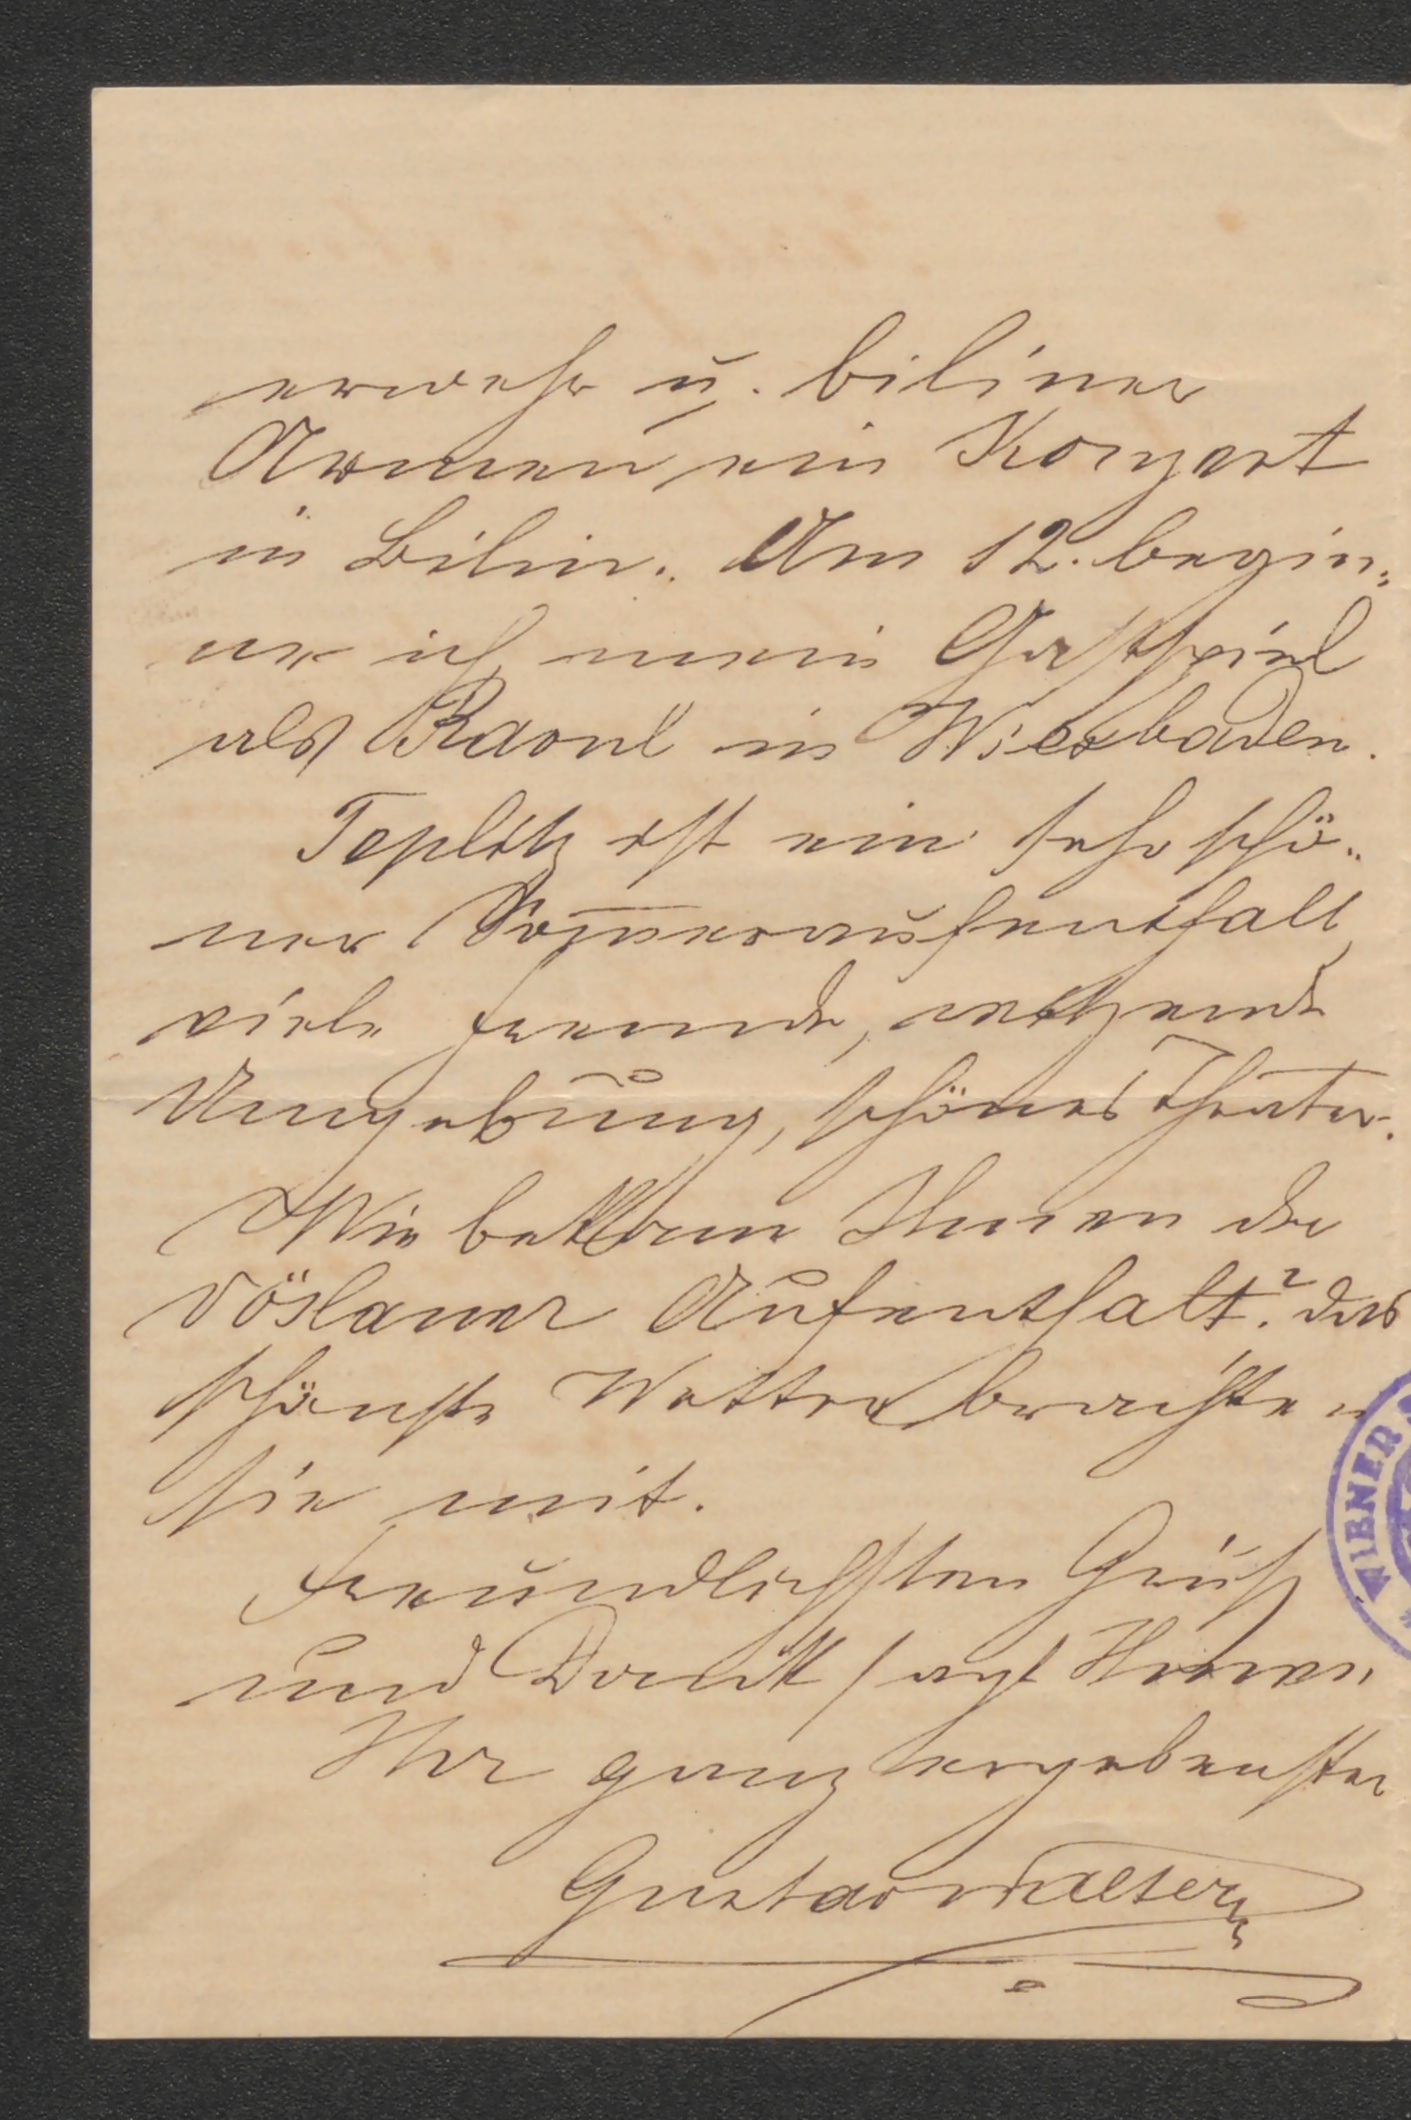 erwehr u. biliner
Armen ein Konzert
in Bilin. Am 12. begin-
ne ich mein Gastspiel
als Raoul in Wiesbaden.
Teplitz ist ein sehr schö-
ner Sommeraufenthalt,
viele Fremde, reitzende
Umgebung, schönes Theater.
Wie bekam Ihnen der
Vöslauer Aufenthalt? das
schönste Wetter brachten
sie mit.
Freundlichsten Gruß
und Dank sagt Ihnen
Ihr ganz ergebenster
Gustav Walter
WIENER